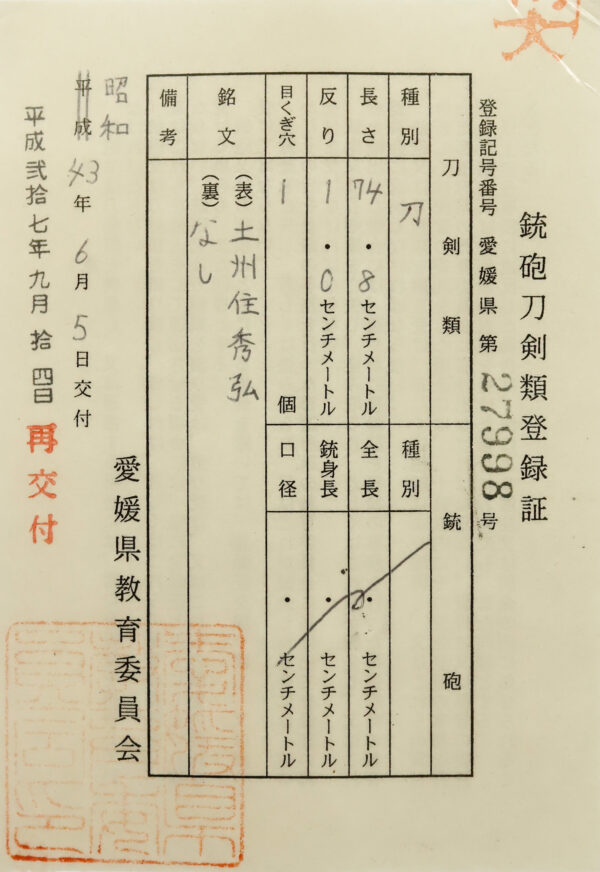 銃砲刀剣類登録証
登録記号番号 愛媛県 第 27998 号
刀剣類
銃砲
種別 刀
長さ 74・8センチメートル
反り 1・0センチメートル
目くぎ穴 1 個
銘文 (表) 土州住秀弘
(裏) なし
備考
種別
全長 ・ センチメートル
銃身長 ・ センチメートル
口径 ・ センチメートル
昭和
平成 43年 6月 5日交付
平成弐拾七年九月拾四日 再交付
愛媛県教育委員会